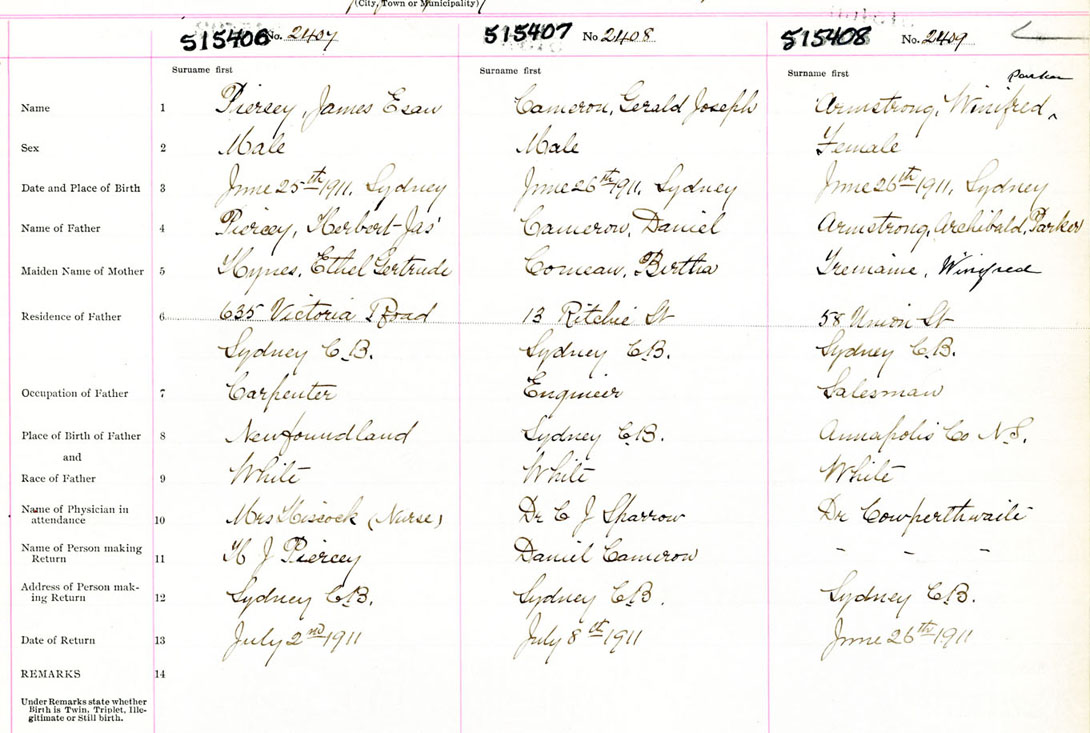 (City, Town or Municipality)
515406 No. 2407 515407 No 2408 515408 No. 2409
Surname first Surname first Surname first Parker
Name 1 Piersey, James Esau Cameron, Gerald Joseph Armstrong, Winifred ^
Sex 2 Male Male Female
Date and Place of Birth 3 June 25th 1911, Sydney June 26th 1911, Sydney June 26th 1911, Sydney
Name of Father 4 Piercey, Herbert Jas' Cameron, Daniel Armstrong, Archibald, Parker
Maiden Name of Mother 5 Hynes, Ethel Gertrude Comeau, Bertha Tremaine, Winifred
Residence of Father 6 635 Victoria Road 13 Ritchie St 58 Union St
Sydney C.B. Sydney C.B. Sydney C.B.
Occupation of Father 7 Carpenter Engineer Salesman
Place of Birth of Father 8 Newfoundland Sydney C.B. Annapolis Co N.S.
and
Race of Father 9 White White White
Name of Physician in
attendance 10 Mrs Hiscock (Nurse) Dr C J Sparrow Dr Cowperthwaite
Name of Person making
Return 11 H J Piercey Daniel Cameron - - -
Address of Person mak-
ing Return 12 Sydney C.B. Sydney C.B. Sydney C.B.
Date of Return 13 July 2nd 1911 July 8th 1911 June 26th 1911
REMARKS 14
Under Remarks state whether
Birth is Twin, Triplet, Ille-
gitimate or Still birth.